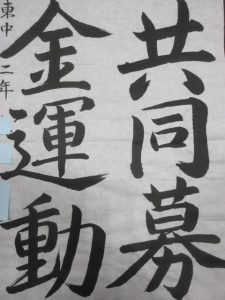 共同募
金運動
東中 二年